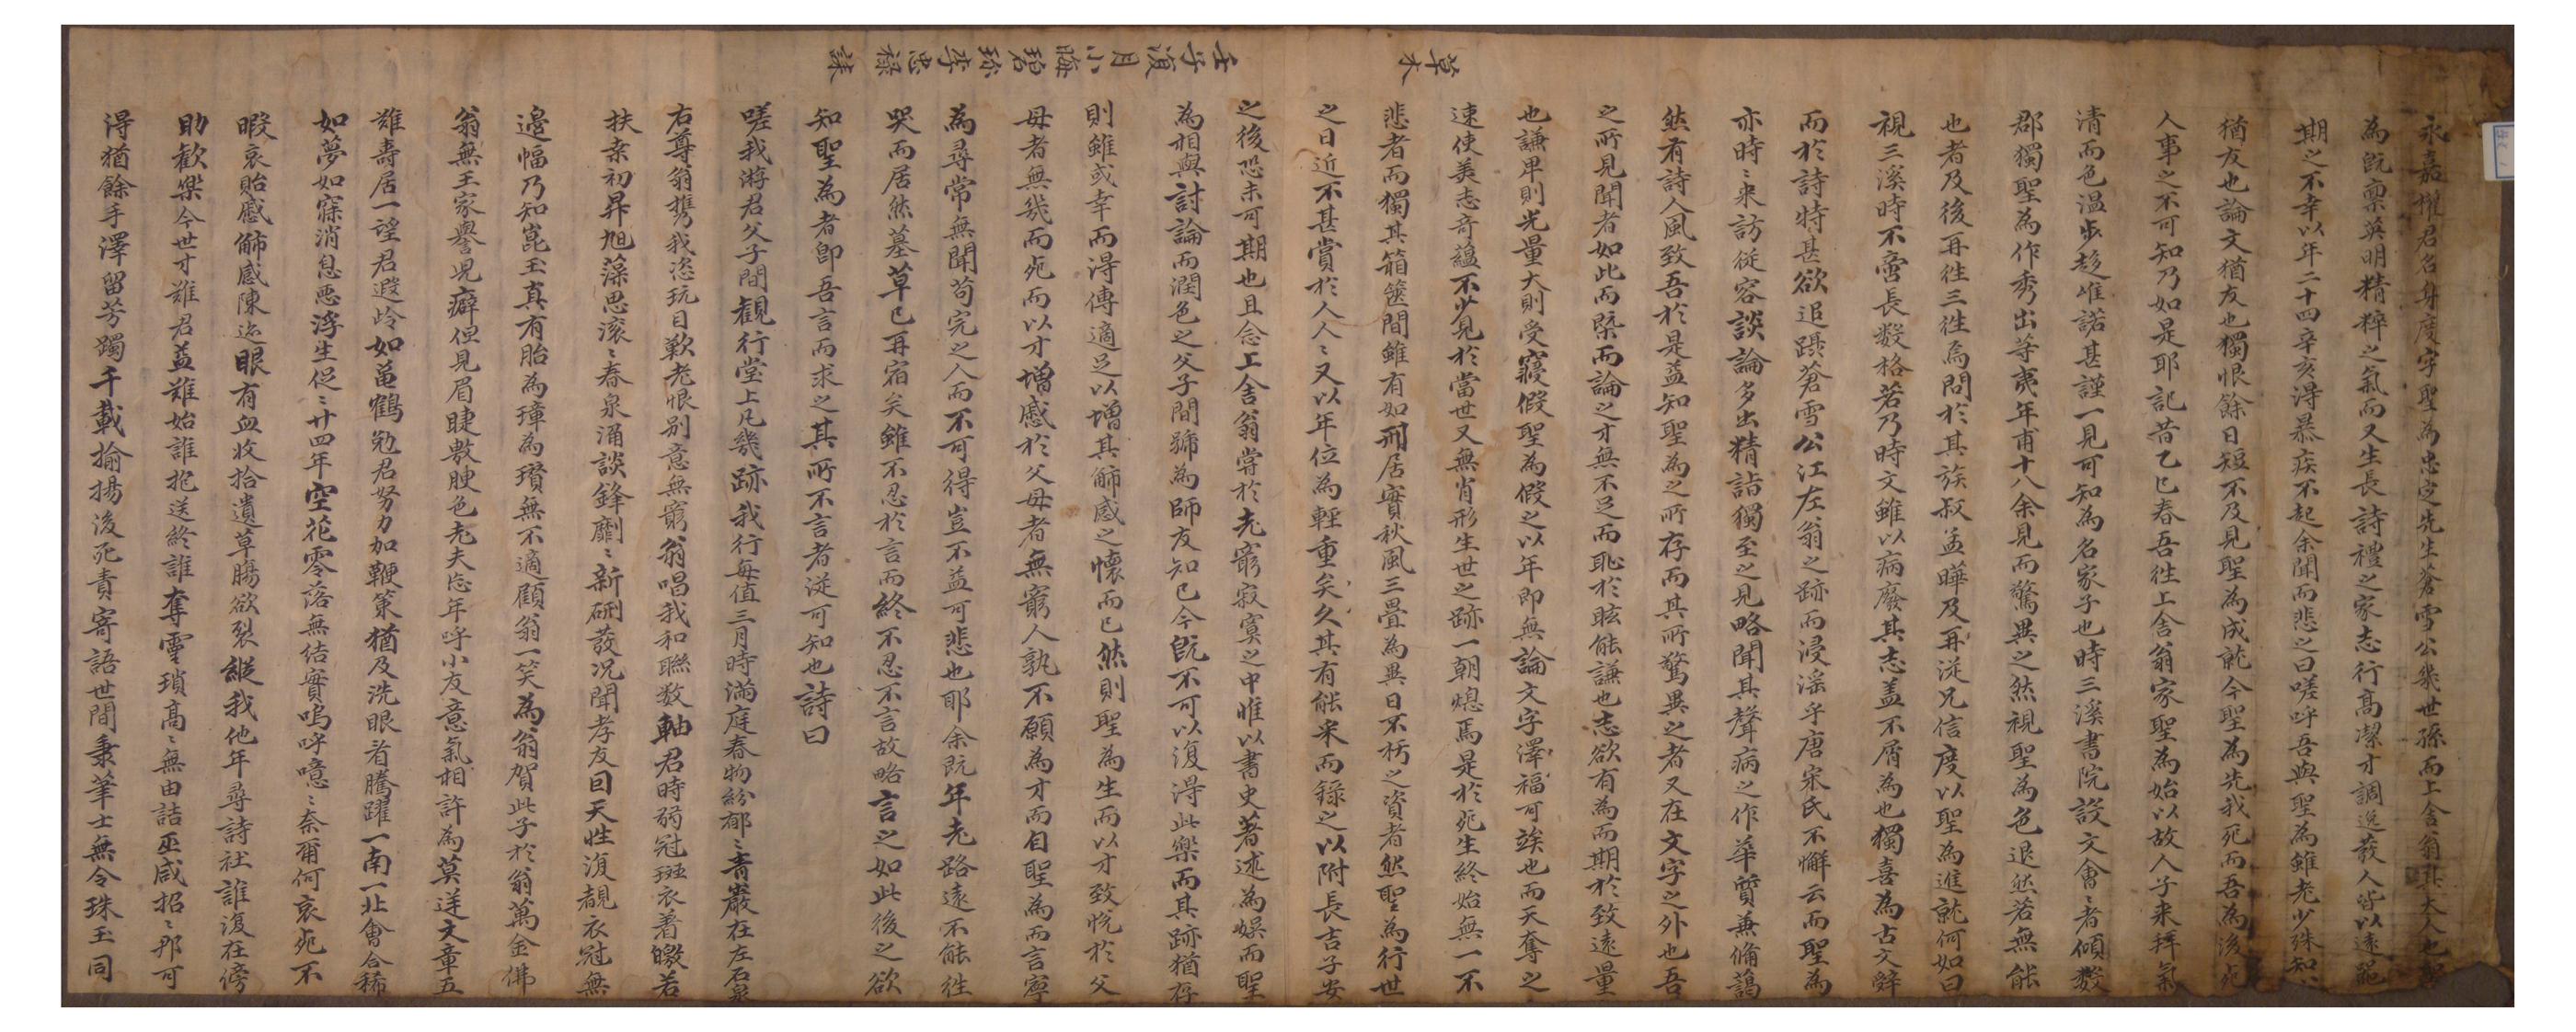 永嘉權君名身度字聖為忠定先生蒼雪公幾世孫而上舍翁其大人也
為旣稟英明精粹之氣而又生長詩禮之家志行高潔才調逸發人皆以遠器
期之不幸以年二十四辛亥得暴疾不起余聞而悲之曰嗟呼吾與聖為雖老少殊知
猶友也論文猶友也獨恨餘日短不及見聖為成就今聖為先我死而吾為後死
人事之不可知乃如是耶記昔乙巳春吾往上舍翁家聖為始以故人子來拜氣
清而色溫步趍唯諾甚謹一見可知為名家子也時三溪書院設文會〻者傾數
郡獨聖為作秀出等夷年甫十八余見而驚異之然視聖為色退然若無能
也者及後再往三往為問於其族叔孟曄及再從兄信度以聖為進就何如曰
視三溪時不啻長數格若乃時文雖以病廢其志盖不屑為也獨喜為古文辭
而於詩特甚欲追躡蒼雪公江左翁之跡而浸淫乎唐宋氏不懈云而聖為
亦時〻來訪從容談論多出精詣獨至之見略聞其聲病之作華質兼備藹
然有詩人風致吾於是益知聖為之所存而其所驚異之者又在文字之外也吾
之所見聞者如此而槩而論之才無不足而恥於眩能謙也志欲有為而期於致遠量
也謙卑則光量大則受寢假聖為假之以年即無論文字澤福可竢也而天奪之
速使美志奇蘊不少見於當世又無肖形生世之跡一朝熄焉是於死生終始無一不
悲者而獨其箱篋間雖有如刑居實秋風三疊為異日不朽之資者然聖為行世
之日近不甚賞於人人〻又以年位為輕重矣久其有能采而錄之以附長吉子安
之後恐未可期也且念上舍翁嘗於老窮寂寞之中唯以書史著述為娛而聖
為相與討論而潤色之父子間號為師友知己今旣不可以復得此樂而其跡猶存
則雖或幸而得傳適足以增其觴感之懷而已然則聖為生而以才致悅於父
母者無幾而死而以才增慼於父母者無窮人孰不願為才而自聖為而言寧
為尋常無聞苟完之人而不可得豈不益可悲也耶余旣年老路遠不能往
哭而居然墓草已再宿矣雖不忍於言而終不忍不言故略言之如此後之欲
知聖為者卽吾言而求之其所不言者從可知也詩曰
嗟我游君父子間觀行堂上凡幾跡我行每值三月時滿庭春物紛郁〻靑巖在左石泉
右尊翁携我恣玩目歎老恨別意無窮翁唱我和聯數軸君時弱冠班衣著皦若
扶桑初昇旭藻思滚〻春泉涌談鋒劘〻新硎發况聞孝友自天性復覩衣冠無
邊幅乃知崑玉真有胎為璋為瓚無不適顧翁一笑為翁賀此子於翁萬金佛
翁無王家譽兒癖但見眉睫敷腴色老夫忘年呼小友意氣相許為莫逆文章五
雖壽居一望君遐岭如菑鶴勉君努力加鞭策猶及洗眼看騰躍一南一北會合稀
如夢如寐消息惡浮生促〻廿四年空花零落無結實嗚呼噫〻奈爾何哀死不
暇哀貽慼觴感陳迹眼有血收拾遺草腸欲裂縱我他年尋詩社誰復在傍
助歡樂今世才雖君益難始誰抱送終誰奪靈瑣高〻無由詰巫咸招〻那可
得猶餘手澤留芳躅千載揄揚後死責寄語世間秉筆士無令珠玉同
草木
壬子湏月小晦碧珍李忠祿謀